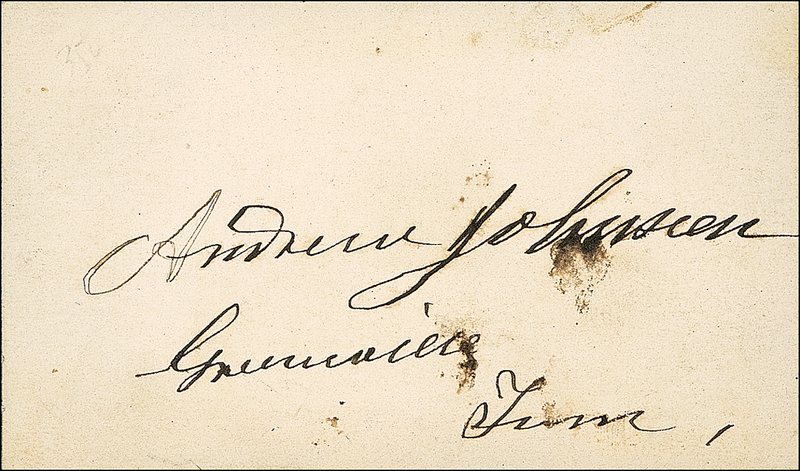 Andrew Johnson
Greenville
Tenn,